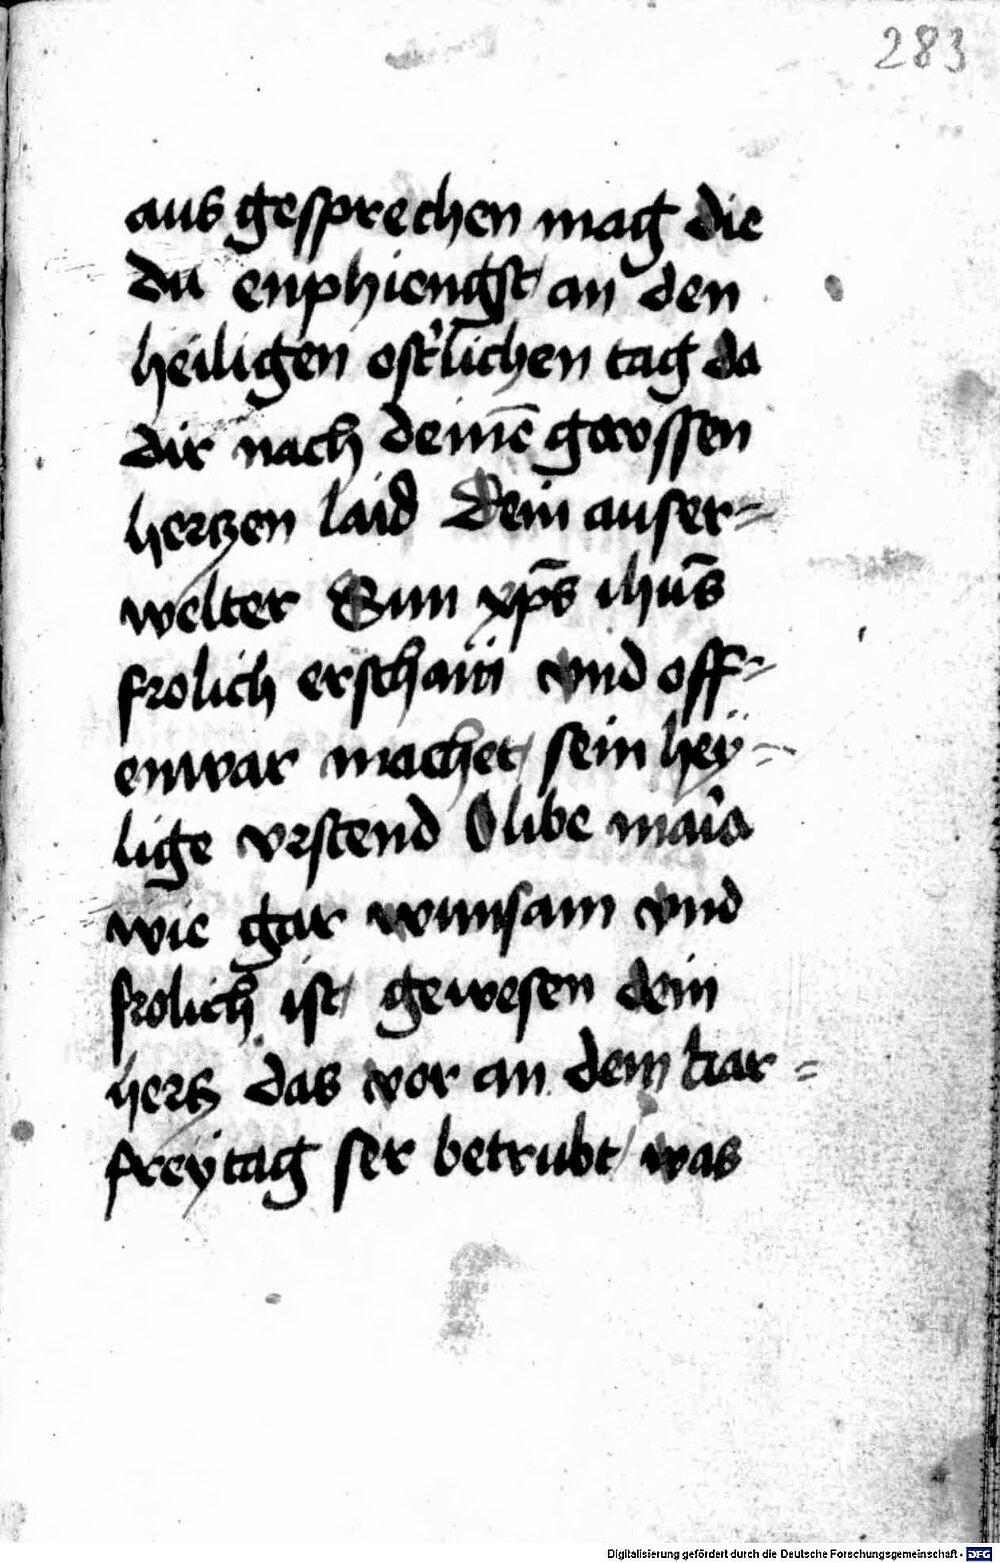 283
aus gesprechen mag die
du enphiengst / an den
heiligen ost'lichen tag da
dir nach deinē grossen
hertzen laid Dein auser=
welter Sun xp̄s ihūs
frolich erschain vnd off=
enwar machet / sein hey=
lige vrstend O libe maīa
wie gar wunsam vnd
frolich ist / gewesen dein
hertz das vor an dem kar=
freytag ser betrubt / was
Digitalisierung gefördert durch die Deutsche Forschungsgemeinschaft - DFG